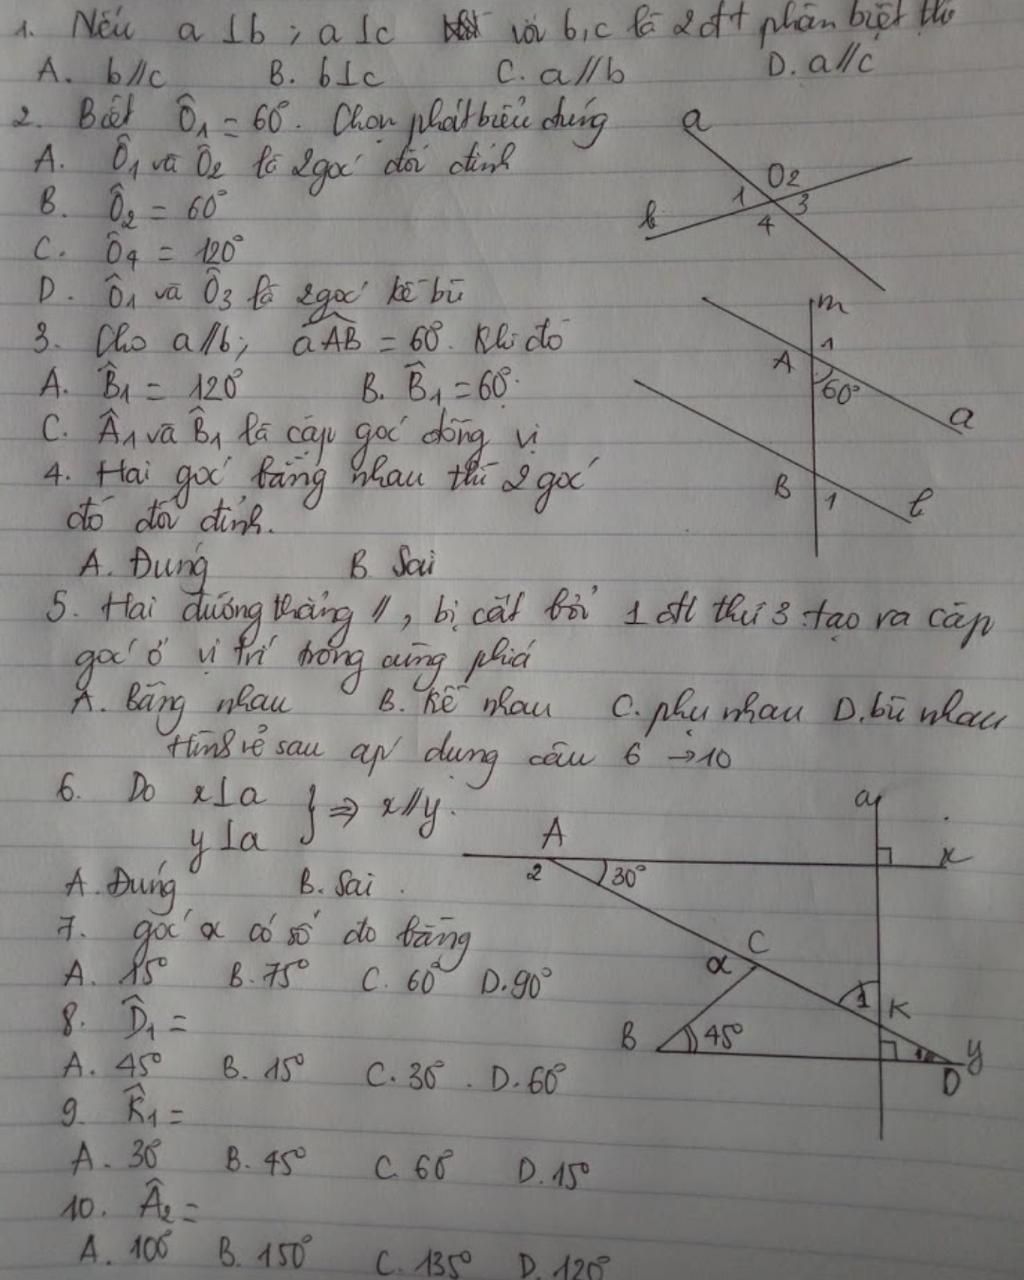 1. Nếu a ⊥ b ; a ⊥ c với b, c là 2 đt phân biệt thì
A. b // c B. b ⊥ c C. a // b D. a // c
2. Biết Ô1 = 60°. Chọn phát biểu đúng
A. Ô1 và Ô2 là 2 góc đối đỉnh
B. Ô2 = 60°
C. Ô4 = 120°
D. Ô1 và Ô3 là 2 góc kề bù
a
O 2
1
3
4
b
3. Cho a // b; aAB = 60°. Khi đó
A. B̂1 = 120° B. B̂1 = 60°.
C. Â1 và B̂1 là cặp góc đồng vị
m
1
A
60°
a
B
1
b
4. Hai góc bằng nhau thì 2 góc
đó đối đỉnh.
A. Đúng B. Sai
5. Hai đường thẳng //, bị cắt bởi 1 đt thứ 3 tạo ra cặp
góc ở vị trí trong cùng phía
A. Bằng nhau B. Kề nhau C. phụ nhau D. bù nhau
Hình vẽ sau áp dụng câu 6 → 10
6. Do x ⊥ a
y ⊥ a } ⇒ x // y.
A. Đúng B. Sai.
7. góc α có số đo bằng
A. 15° B. 75° C. 60° D. 90°
8. D̂1 =
A. 45° B. 15° C. 30°. D. 60°
9. K̂1 =
A. 30° B. 45° C. 60° D. 15°
10. Â2 =
A. 100° B. 150° C. 135° D. 120°
a
A
x
2
30°
C
α
1
K
B
45°
1
y
D